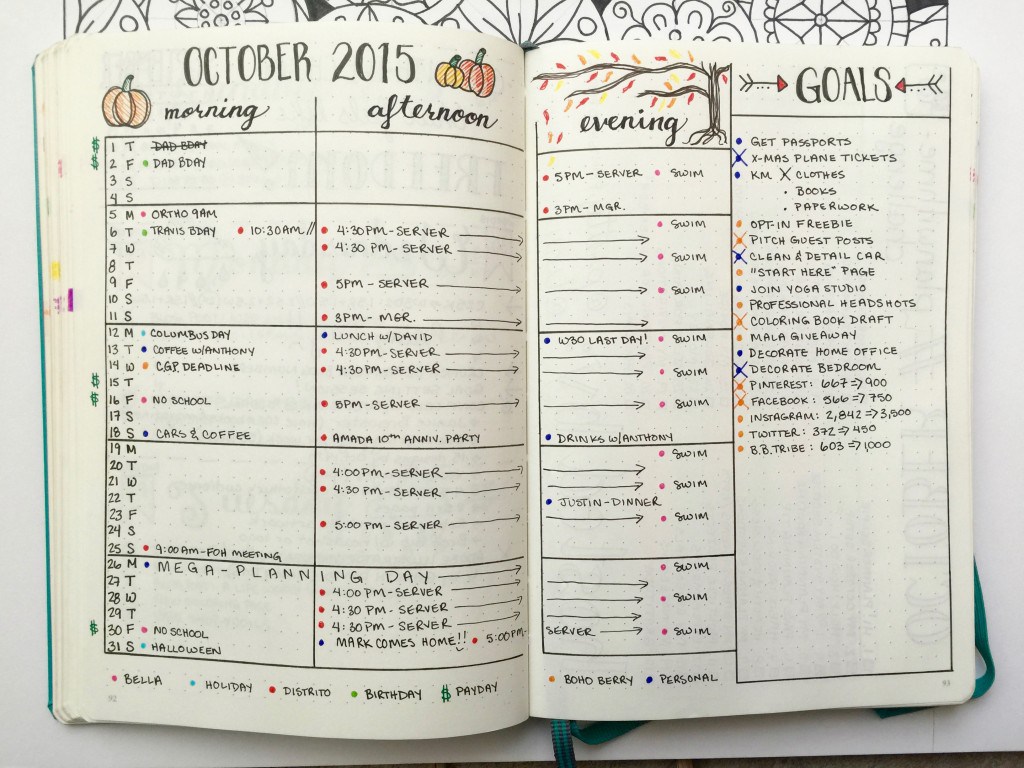 OCTOBER 2015
morning afternoon
$ 1 T DAD BDAY
$ 2 F DAD BDAY
3 S
4 S
5 M ORTHO 9AM
6 T TRAVIS BDAY 10:30AM // 4:30PM-SERVER
7 W 4:30 PM-SERVER
8 T
9 F 5PM-SERVER
10 S
11 S 3PM-MGR.
12 M COLUMBUS DAY LUNCH W/DAVID
13 T COFFEE W/ANTHONY 4:30PM-SERVER
14 W C.G.P. DEADLINE 4:30PM-SERVER
$ 15 T
$ 16 F NO SCHOOL 5PM-SERVER
17 S
18 S CARS & COFFEE AMADA 10TH ANNIV. PARTY
19 M
20 T 4:00PM-SERVER
21 W 4:30 PM-SERVER
22 T
23 F 5:00 PM-SERVER
24 S
25 S 9:00AM-FOH MEETING
26 M MEGA-PLANNING DAY
27 T 4:00 PM-SERVER
28 W 4:30 PM-SERVER
29 T 4:30 PM-SERVER
$ 30 F NO SCHOOL MARK COMES HOME!! 5:00PM-
31 S HALLOWEEN
BELLA HOLIDAY DISTRITO BIRTHDAY $ PAYDAY
92
evening
5PM-SERVER SWIM
3PM-MGR.
SWIM
SWIM
SWIM
W30 LAST DAY! SWIM
SWIM
SWIM
DRINKS W/ANTHONY
SWIM
SWIM
JUSTIN-DINNER
SWIM
SWIM
SWIM
SERVER SWIM
BOHO BERRY PERSONAL
GOALS
GET PASSPORTS
X-MAS PLANE TICKETS
KM X CLOTHES
BOOKS
PAPERWORK
OPT-IN FREEBIE
PITCH GUEST POSTS
CLEAN & DETAIL CAR
"START HERE" PAGE
JOIN YOGA STUDIO
PROFESSIONAL HEADSHOTS
COLORING BOOK DRAFT
MALA GIVEAWAY
DECORATE HOME OFFICE
DECORATE BEDROOM
PINTEREST: 667⇒900
FACEBOOK: 566⇒750
INSTAGRAM: 2,842⇒3,500
TWITTER: 372⇒450
B.B.TRIBE: 603⇒1000
93